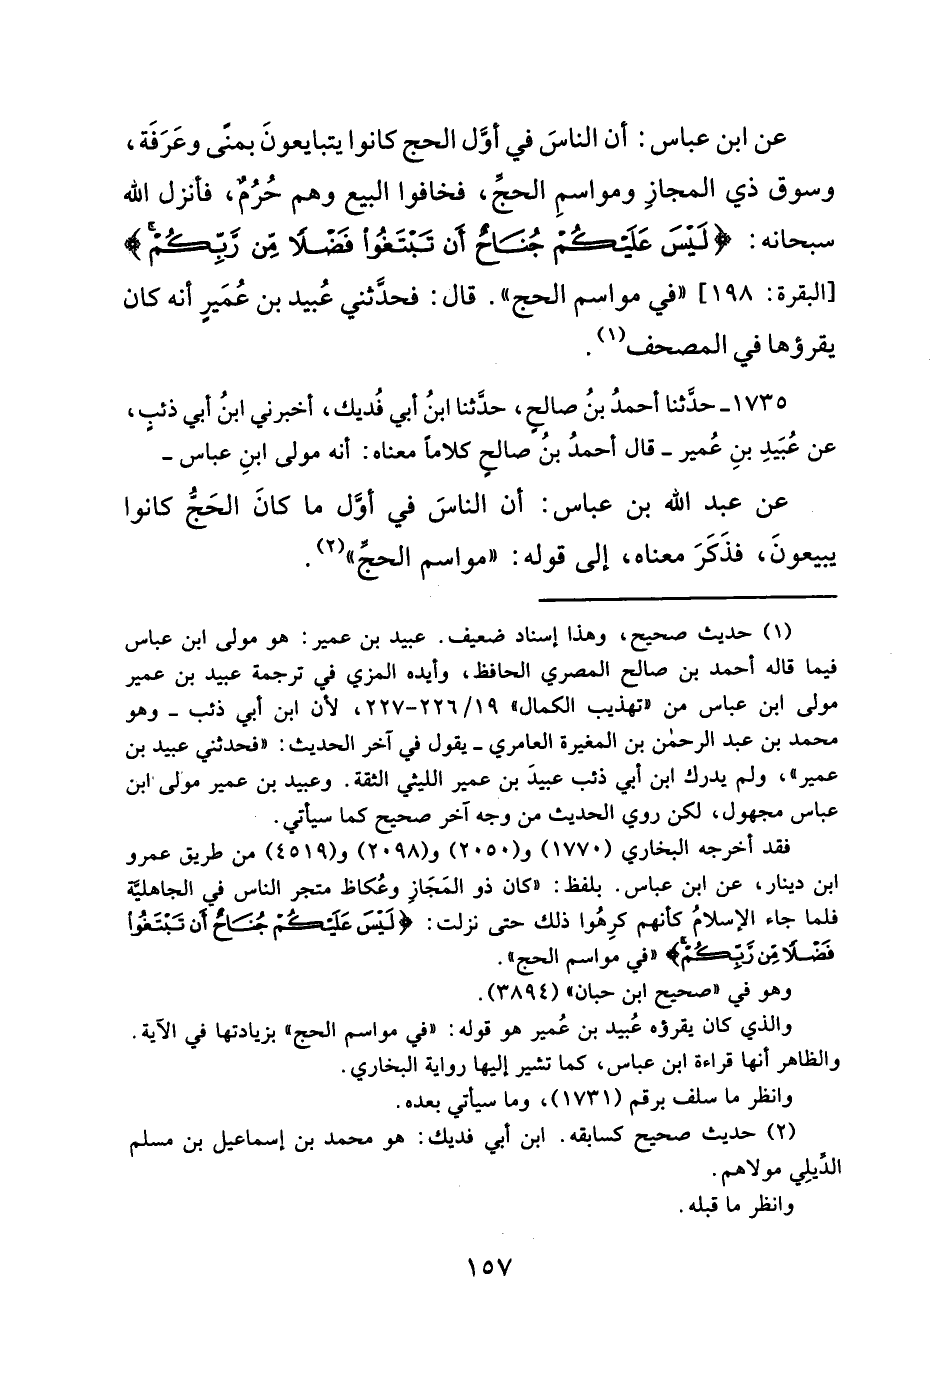 عن ابن عباس: أن الناسَ في أوَّل الحج كانوا يتبايعونَ بمنًى وعَرَفَة،
وسوق ذي المجازِ ومواسمِ الحجِّ، فخافوا البيع وهم حُرُمٌ، فأنزل الله
سبحانه: ﴿لَيْسَ عَلَيْكُمْ جُنَاحٌ أَن تَبْتَغُوا فَضْلًا مِّن رَّبِّكُمْ﴾
[البقرة: ١٩٨] «في مواسم الحج». قال: فحدَّثني عُبيد بن عُمَيرٍ أنه كان
يقرؤها في المصحف(١).
١٧٣٥ـ حدَّثنا أحمدُ بنُ صالحٍ، حدَّثنا ابنُ أبي فُديك، أخبرني ابنُ أبي ذئبٍ،
عن عُبَيدِ بنِ عُمير ـ قال أحمدُ بنُ صالحٍ كلاماً معناه: أنه مولى ابنِ عباس ـ
عن عبد الله بن عباس: أن الناسَ في أوَّل ما كانَ الحَجُّ كانوا
يبيعونَ، فذَكَرَ معناه، إلى قوله: «مواسم الحجِّ»(٢).
(١) حديث صحيح، وهذا إسناد ضعيف. عبيد بن عمير: هو مولى ابن عباس
فيما قاله أحمد بن صالح المصري الحافظ، وأيده المزي في ترجمة عبيد بن عمير
مولى ابن عباس من «تهذيب الكمال» ١٩/٢٢٦-٢٢٧، لأن ابن أبي ذئب ـ وهو
محمد بن عبد الرحمٰن بن المغيرة العامري ـ يقول في آخر الحديث: «فحدثني عبيد بن
عمير»، ولم يدرك ابن أبي ذئب عبيدَ بن عمير الليثي الثقة. وعبيد بن عمير مولى ابن
عباس مجهول، لكن روي الحديث من وجه آخر صحيح كما سيأتي.
فقد أخرجه البخاري (١٧٧٠) و(٢٠٥٠) و(٢٠٩٨) و(٤٥١٩) من طريق عمرو
ابن دينار، عن ابن عباس. بلفظ: «كان ذو المَجَازِ وعُكاظ متجر الناس في الجاهليَّة
فلما جاء الإسلامُ كأنهم كرِهُوا ذلك حتى نزلت: ﴿لَيْسَ عَلَيْكُمْ جُنَاحٌ أَن تَبْتَغُوا
فَضْلًا مِّن رَّبِّكُمْ﴾ «في مواسم الحج».
وهو في «صحيح ابن حبان» (٣٨٩٤).
والذي كان يقرؤه عُبيد بن عُمير هو قوله: «في مواسم الحج» بزيادتها في الآية.
والظاهر أنها قراءة ابن عباس، كما تشير إليها رواية البخاري.
وانظر ما سلف برقم (١٧٣١)، وما سيأتي بعده.
(٢) حديث صحيح كسابقه. ابن أبي فديك: هو محمد بن إسماعيل بن مسلم
الدِّيلِي مولاهم.
وانظر ما قبله.
١٥٧